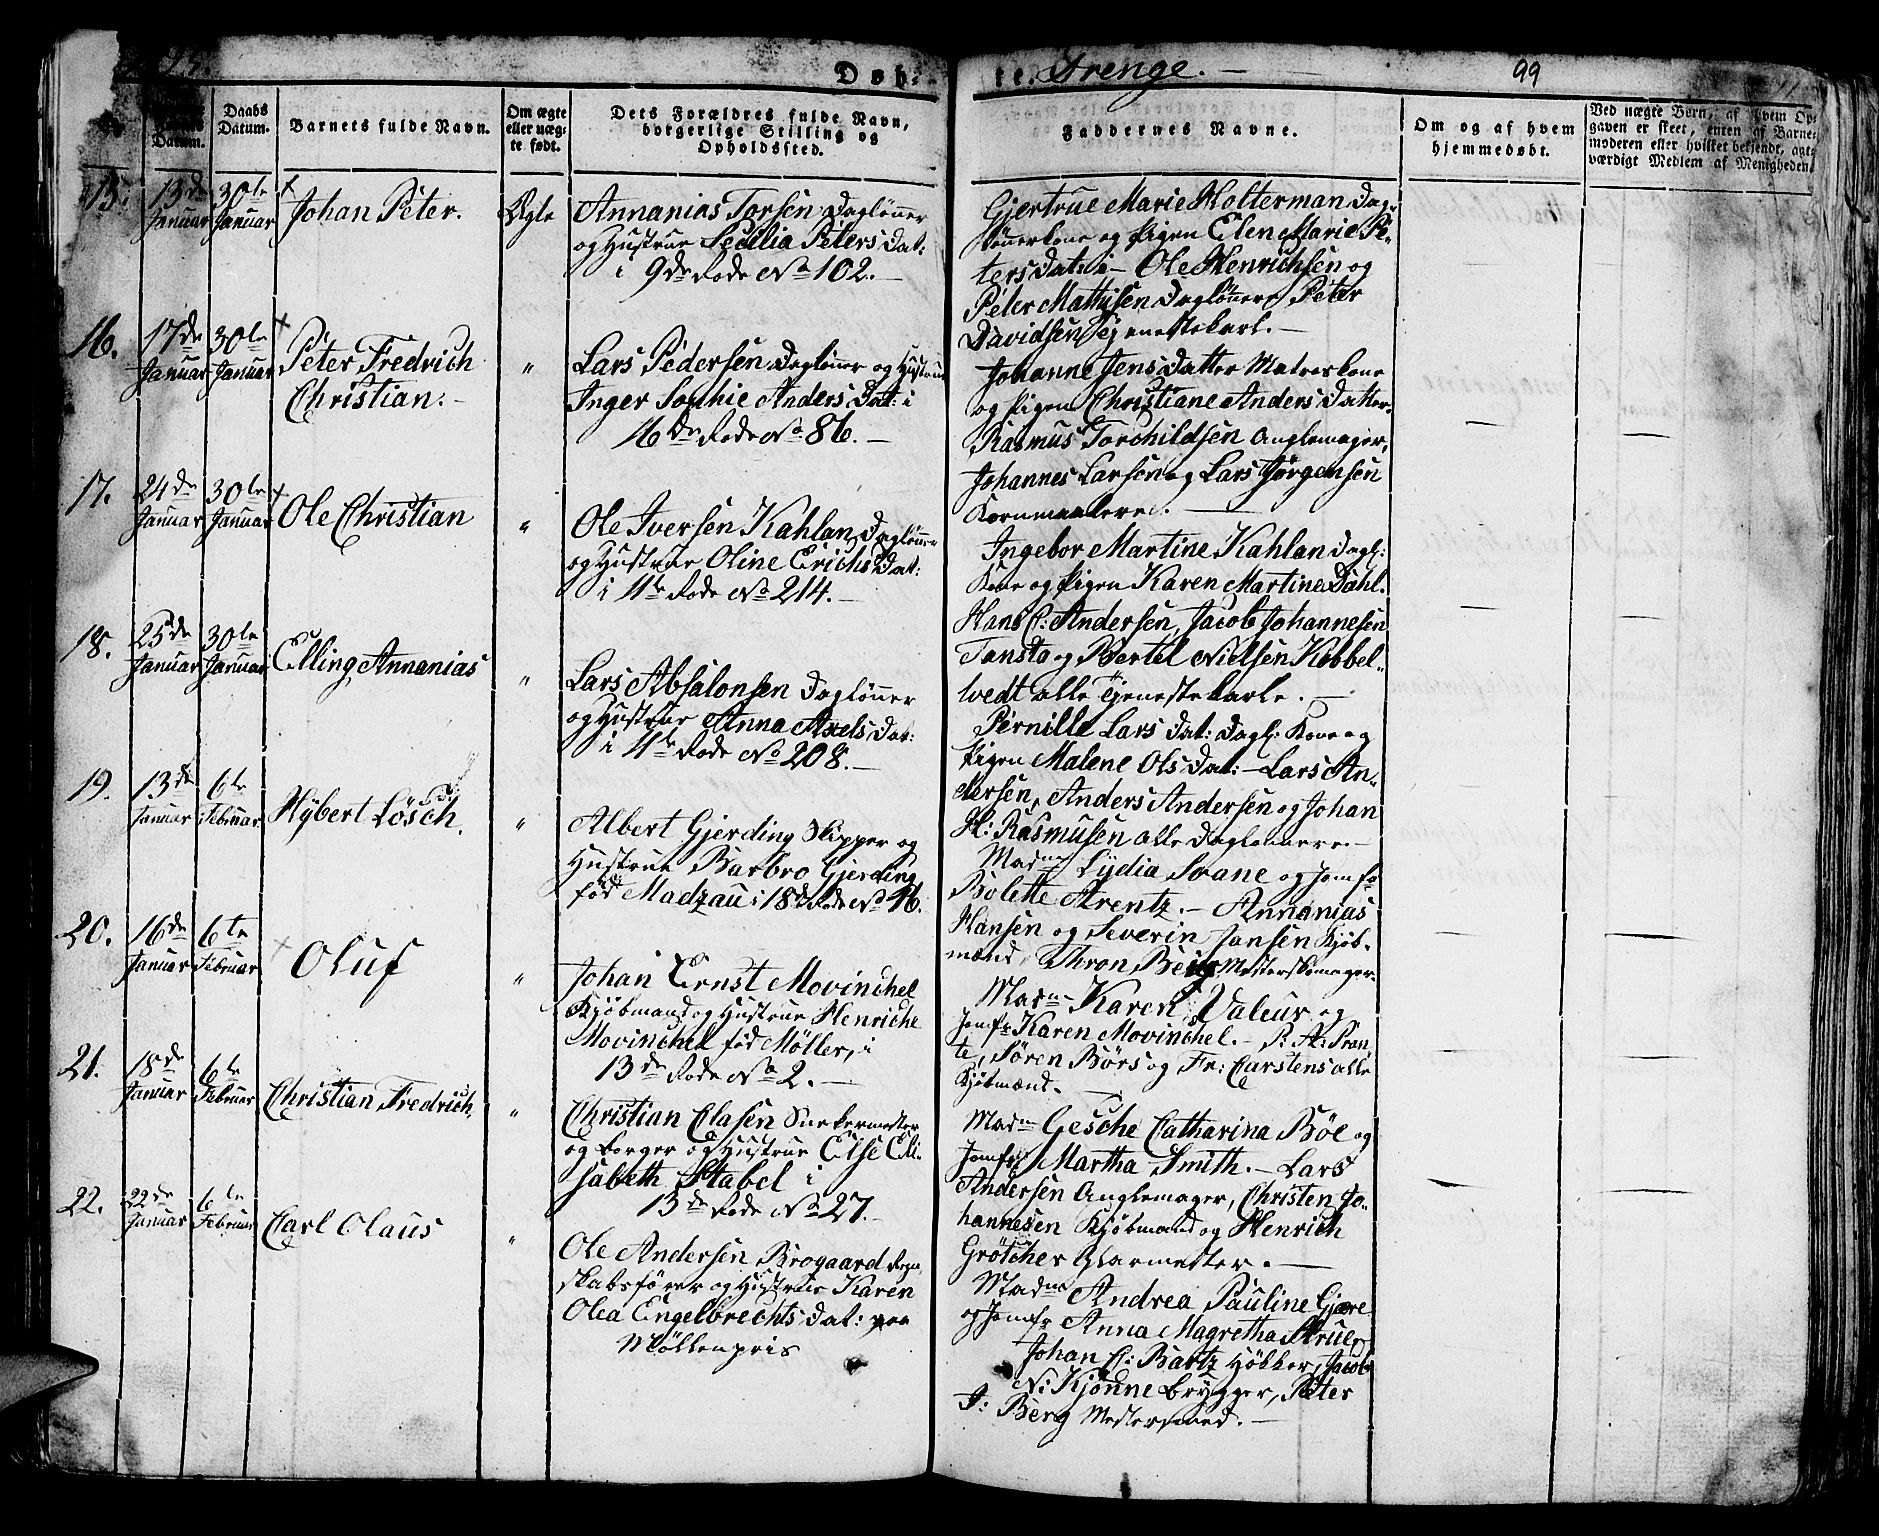 Døb-
te. Drenge. — 99
Daabs Datum.
Barnets fulde Navn.
Om ægte eller uæg-te født.
Dets Forældres fulde Navn, borgerlige Stilling og Opholdssted.
Faddernes Navne.
Om og af hvem hjemmedøbt.
Ved uægte Børn, af hvem Op-gaven er skeet, enten af Barne-moderen eller hvilket bekjendt, agt-værdigt Medlem af Menigheden.
15. 13de Januar 30te Januar Johan Peter. Ægte
Annanias Torsen Daglönner
og Hustrue Secilia Peters Dat:
i 9de Rode No 102. —
Gjertrue Marie Holterman Dag-
lönnerkone og Pigen Elen Marie Pe-
tersdat: — Ole Henrichsen og
Peter Mathisen Daglönnere Peter
Davidsen Tjenestekarl. —
16. 17de Januar 30te Januar Peter Fredrich
Christian. — "
Lars Pedersen Daglönner og Hustrue
Inger Sophie Anders Dat: i
16de Rode No 86. —
Johanne Jens Datter Matroskone
og Pigen Christiane Anders Datter.
Rasmus Torchildsen Anglemager,
Johannes Larsen og Lars Jörgensen
Kornmaalere. —
17. 24de Januar 30te Januar Ole Christian "
Ole Iversen Kahlan Daglönner
og Hustrue Oline Erichs Dat:
i 11te Rode No 214. —
Ingebor Martine Kahlan Dagl:
Kone og Pigen Karen Martine Dahl.
Hans C: Andersen, Jacob Johannesen
Tansta og Bertel Nielsen Kobbel-
tvedt alle Tjenestekarle. —
18. 25de Januar 30te Januar Elling Annanias "
Lars Absalonsen Daglönner
og Hustrue Anna Axels Dat:
i 11te Rode No 208. —
Pernille Lars Dat: Dagl: Kone og
Pigen Malene Ols Dat: — Lars An-
dersen, Anders Andersen og Johan
H: Rasmusen alle Daglönnere. —
19. 13de Januar 6te Februar Hybert Lösch. "
Albert Gjerding Skipper og
Hustrue Barbro Gjerding
föd Madzau i 18de Rode No 16.
Madme Lydia Svane og Jomfr
Bolette Arentz. — Annanias
Hansen og Severin Jansen Kjöb-
mænd, Thron Berg Mesterskomager
20. 16de Januar 6te Februar Oluf "
Johan Ernst Movinchel
Kjöbmand og Hustrue Henriche
Movinchel föd Møller, i
13de Rode No 2. —
Madme Karen Valeur og
Jomfr Karen Movinchel. — P. A: Pran-
te, Søren Børs og Fr: Carstens alle
Kjöbmænd. —
21. 18de Januar 6te Februar Christian Fredrich. "
Christian Clasen Snekermester
og borger og Hustrue Else Eli-
sabeth Stabel i
13de Rode No 27. —
Madme Gesche Catharina Böe og
Jomfr Martha Smith. — Lars
Andersen Anglemager, Christen Jo-
hannesen Kjöbmand og Henrich
Grötcher Glarmester. —
22. 22de Januar 6te Februar Carl Olaus "
Ole Andersen Brogaard Regn-
skabsförer og Hustrue Karen
Olea Engelbrechts Dat: paa
Møllenpris
Madme Andrea Pauline Gjære
og Jomfr Anna Magretha Krue,
Johan C: Bartz Høkker, Jacob
N: Kjønne brygger, Peter
J: Berg Mestersmed. —